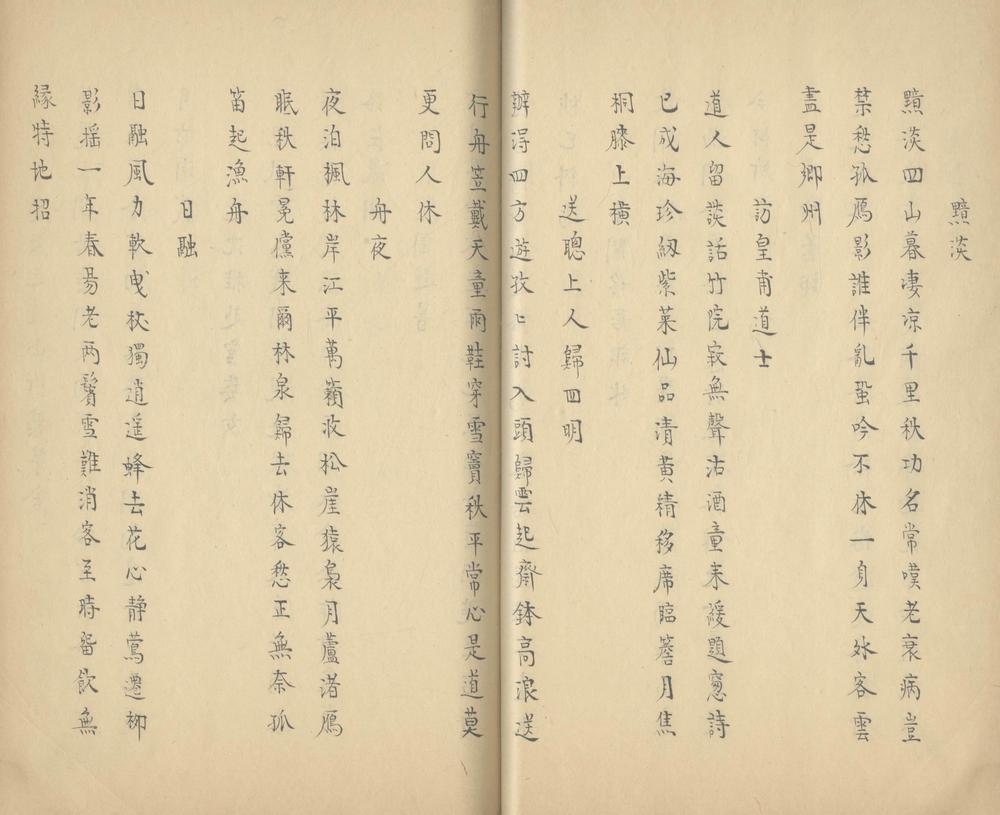 黯淡
黯淡四山暮淒凉千里秋功名常嘆老衰病豈
禁愁孤鴈影誰伴亂蛩吟不休一身天外客雲
盡是鄉州
訪皇甫道士
道人留談話竹院寂無聲沽酒童來緩題窻詩
已成海珍紉紫菜仙品清黄精移席臨簷月焦
桐膝上橫
送聰上人歸四明
辦得四方遊孜〻討入頭歸雲起齋鉢高浪送
行舟笠戴天童雨鞋穿雪竇秋平常心是道莫
更問人休
舟夜
夜泊楓林岸江平萬籟收松崖猿梟月蘆渚鴈
眠秋軒冕儻来爾林泉歸去休客愁正無奈孤
笛起漁舟
日融
日融風力軟曳杖獨逍遥蜂去花心静鶯遷柳
影摇一年春昜老两鬢雪難消客至時畱飲無
緣特地招